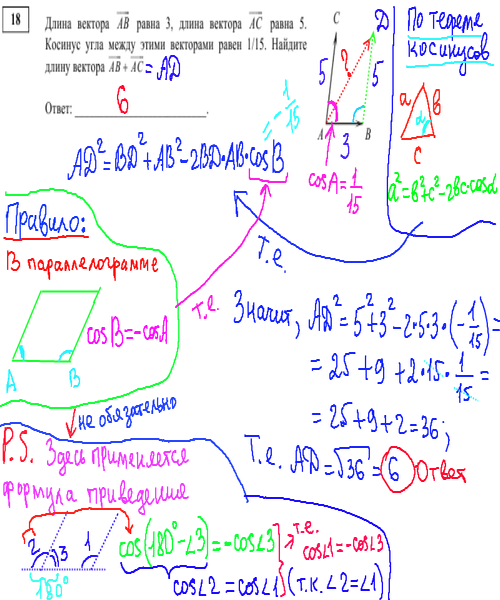 18
Длина вектора AB равна 3, длина вектора AC равна 5.
Косинус угла между этими векторами равен 1/15. Найдите
длину вектора AB + AC = AD
Ответ: 6
C
D
5
?
5
A
B
3
cosA = 1/15
= -1/15
По теореме
косинусов
a
b
α
c
a² = b² + c² - 2bc·cosα
AD² = BD² + AB² - 2BD·AB·cosB
Правило:
В параллелограмме
cosB = -cosA
A
B
т.е.
т.е.
Значит, AD² = 5² + 3² - 2·5·3·(-1/15) =
= 25 + 9 + 2·15·1/15 =
= 25 + 9 + 2 = 36;
Т.е. AD = √36 = 6 Ответ
не обязательно
P.S. Здесь применяется
формула приведения
2
3
1
180°
cos(180° - ∠3) = -cos∠3
т.е.
cos∠1 = -cos∠3
cos∠2 = cos∠1 (т.к. ∠2 = ∠1)